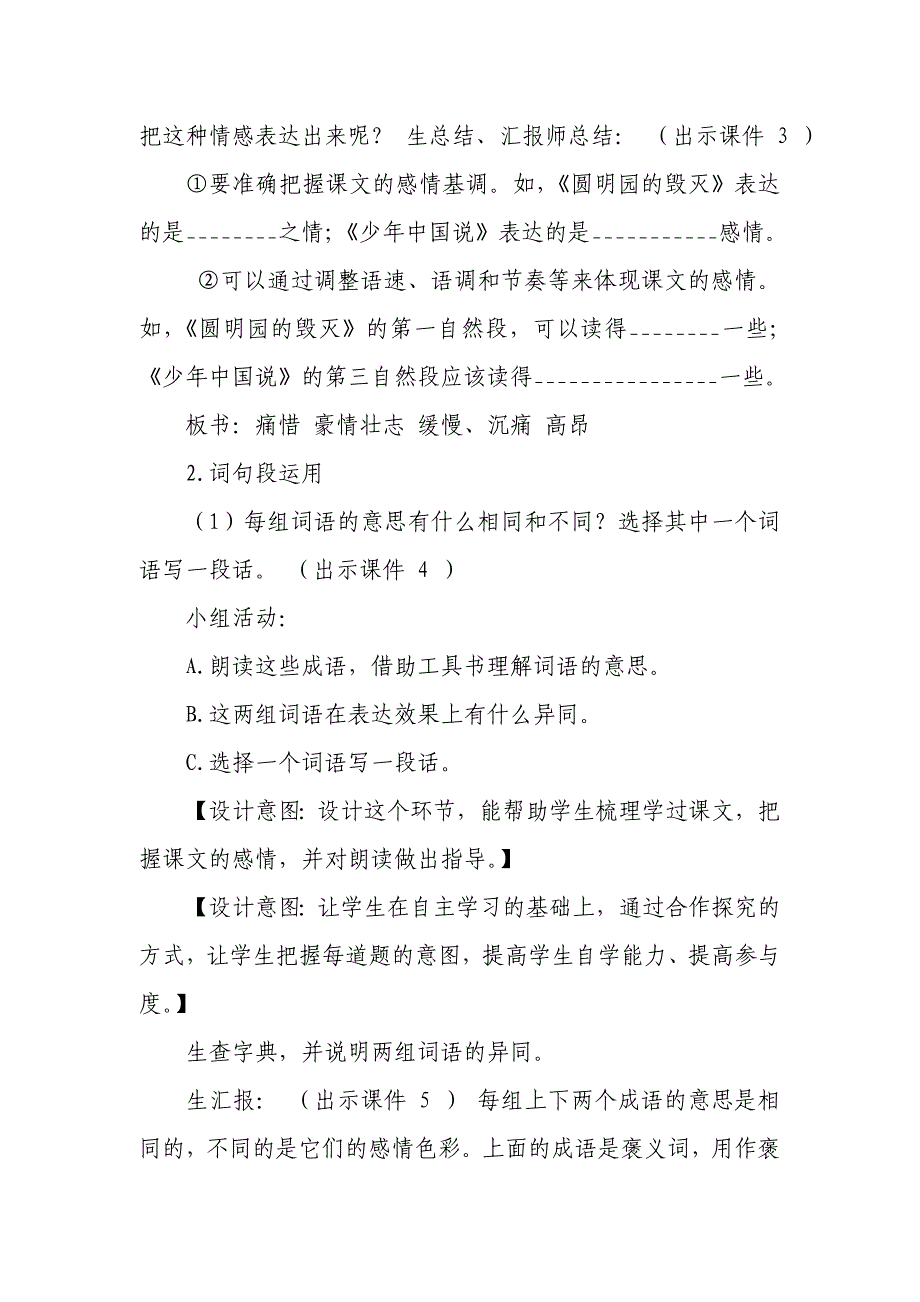 把这种情感表达出来呢? 生总结、汇报师总结: （出示课件 3 ）
①要准确把握课文的感情基调。如,《圆明园的毁灭》表达
的是--------之情;《少年中国说》表达的是-----------感情。
②可以通过调整语速、语调和节奏等来体现课文的感情。
如,《圆明园的毁灭》的第一自然段,可以读得--------一些;
《少年中国说》的第三自然段应该读得----------------一些。
板书: 痛惜 豪情壮志 缓慢、沉痛 高昂
2.词句段运用
（1）每组词语的意思有什么相同和不同? 选择其中一个词
语写一段话。 （出示课件 4 ）
小组活动:
A.朗读这些成语,借助工具书理解词语的意思。
B.这两组词语在表达效果上有什么异同。
C.选择一个词语写一段话。
【设计意图: 设计这个环节,能帮助学生梳理学过课文,把
握课文的感情,并对朗读做出指导。】
【设计意图: 让学生在自主学习的基础上,通过合作探究的
方式,让学生把握每道题的意图,提高学生自学能力、提高参与
度。】
生查字典,并说明两组词语的异同。
生汇报: （出示课件 5 ） 每组上下两个成语的意思是相
同的,不同的是它们的感情色彩。上面的成语是褒义词,用作褒